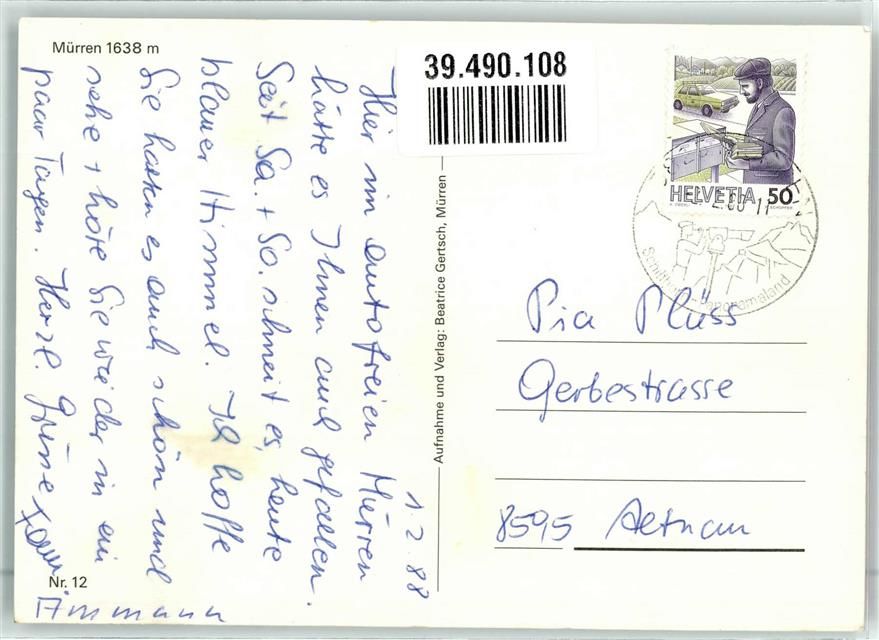 Mürren 1638 m
39.490.108
HELVETIA 50
Schilthorn-Panoramaland
1.2.88
Hier im autofreien Mürren
hätte es Ihnen auch gefallen.
Seit Sa. + So. schneit es, heute
blauer Himmel. Ich hoffe
Sie hatten es auch schön und
sehe + höre Sie wieder in ein
paar Tagen. Herzl. Grüsse
Fam.
Ammann
Aufnahme und Verlag: Beatrice Gertsch, Mürren
Pia Flüss
Gerbestrasse
8595 Altnau
Nr. 12